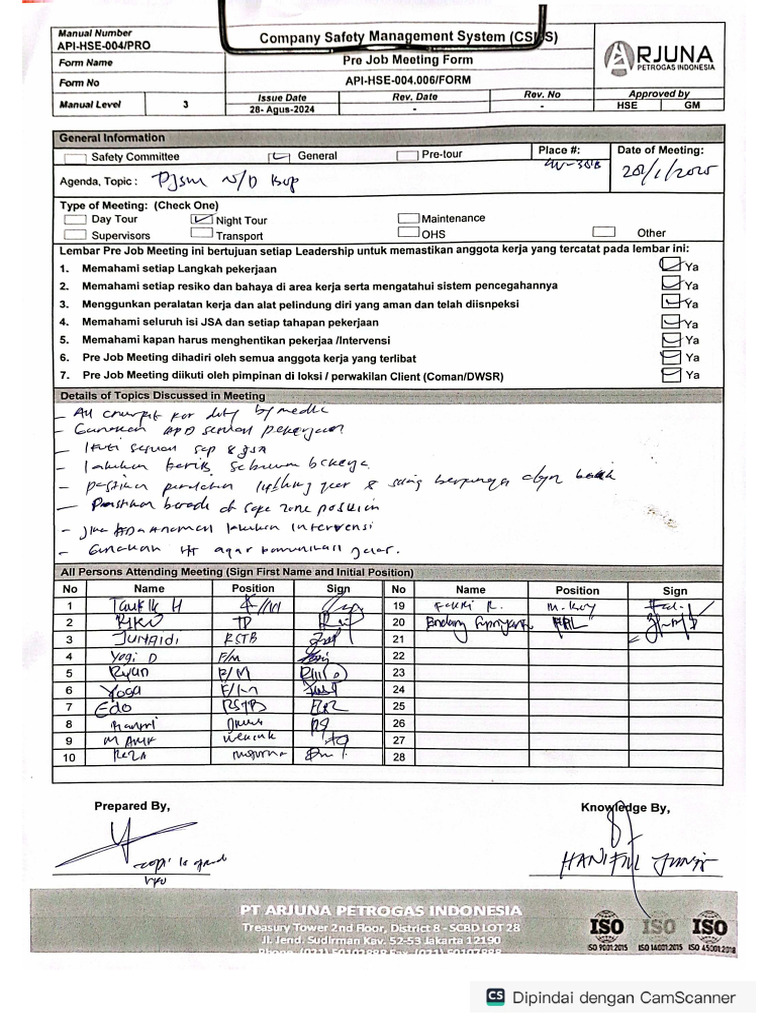 Manual Number
API-HSE-004/PRO
Company Safety Management System (CSMS)
ARJUNA
PETROGAS INDONESIA
Form Name
Pre Job Meeting Form
Form No
API-HSE-004.006/FORM
Manual Level
3
Issue Date
Rev. Date
Rev. No
Approved by
28- Agus-2024
-
-
HSE
GM
General Information
Safety Committee
General
Pre-tour
Place #:
Date of Meeting:
Agenda, Topic : PJSM N/D BOP
Type of Meeting: (Check One)
Day Tour
Night Tour
Maintenance
Supervisors
Transport
OHS
Other
Lembar Pre Job Meeting ini bertujuan setiap Leadership untuk memastikan anggota kerja yang tercatat pada lembar ini:
1. Memahami setiap Langkah pekerjaan Ya
2. Memahami setiap resiko dan bahaya di area kerja serta mengatahui sistem pencegahannya Ya
3. Menggunkan peralatan kerja dan alat pelindung diri yang aman dan telah diisnpeksi Ya
4. Memahami seluruh isi JSA dan setiap tahapan pekerjaan Ya
5. Memahami kapan harus menghentikan pekerjaa /Intervensi Ya
6. Pre Job Meeting dihadiri oleh semua anggota kerja yang terlibat Ya
7. Pre Job Meeting diikuti oleh pimpinan di loksi / perwakilan Client (Coman/DWSR) Ya
Details of Topics Discussed in Meeting
- All crew fit for duty by medic
- Gunakan APD sesuai pekerjaan
- Ikuti sesuai sop & JSA
- Lakukan sebelum bekerja
- pastikan peralatan lifting gear & berfungsi dgn baik
- Pastikan berada di safe zone position
- Jika lakukan intervensi
- Gunakan HT agar komunikasi jelas.
All Persons Attending Meeting (Sign First Name and Initial Position)
No Name Position Sign No Name Position Sign
1 Taufik H 19 Fakri R.
2 Riko TP 20 Endang
3 Junaidi RSTB 21
4 Yogi D F/M 22
5 Ryan F/M 23
6 Yoga F/M 24
7 Edo RSTB 25
8 26
9 27
10 Reza 28
Prepared By,
Knowledge By,
HANIFUL
PT ARJUNA PETROGAS INDONESIA
Treasury Tower 2nd Floor, District 8 - SCBD LOT 28
Jl. Jend. Sudirman Kav. 52-53 Jakarta 12190
ISO ISO ISO
ISO 9001:2015 ISO 14001:2015 ISO 45001:2018
CS Dipindai dengan CamScanner